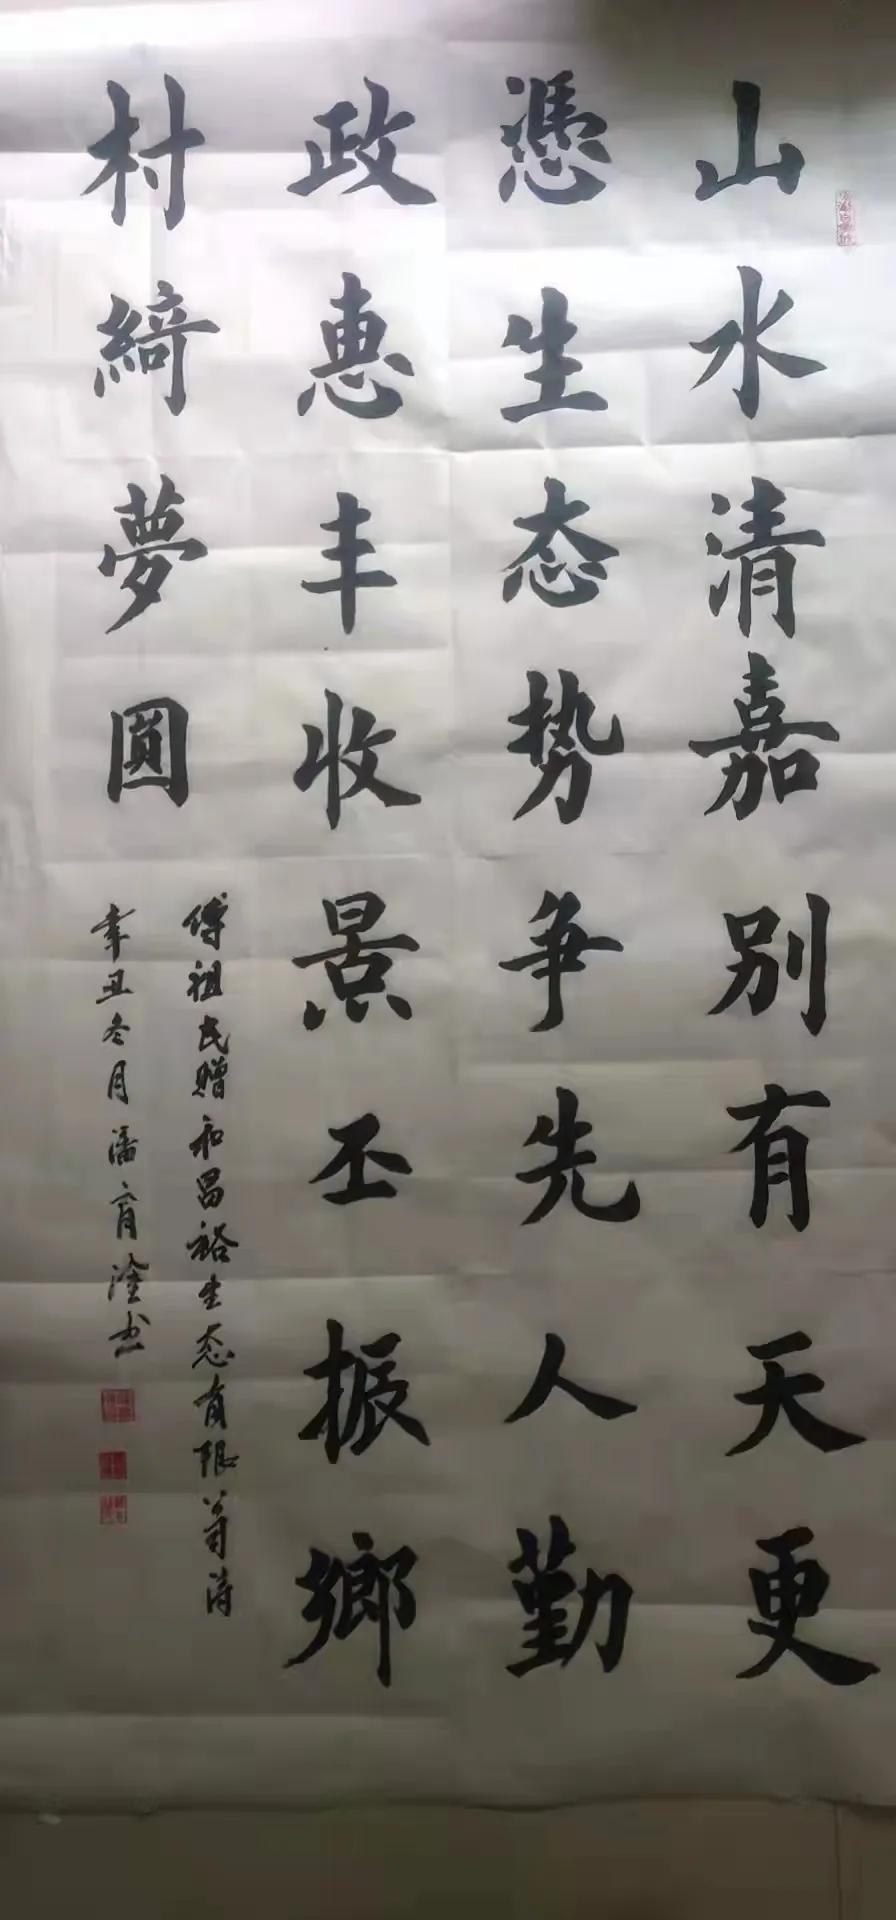 山水清嘉别有天更
憑生态势争先人勤
政惠丰收景丕振鄉
村綺夢圓
傅祖民赠和昌裕生态有限
辛丑冬月潘育淦书